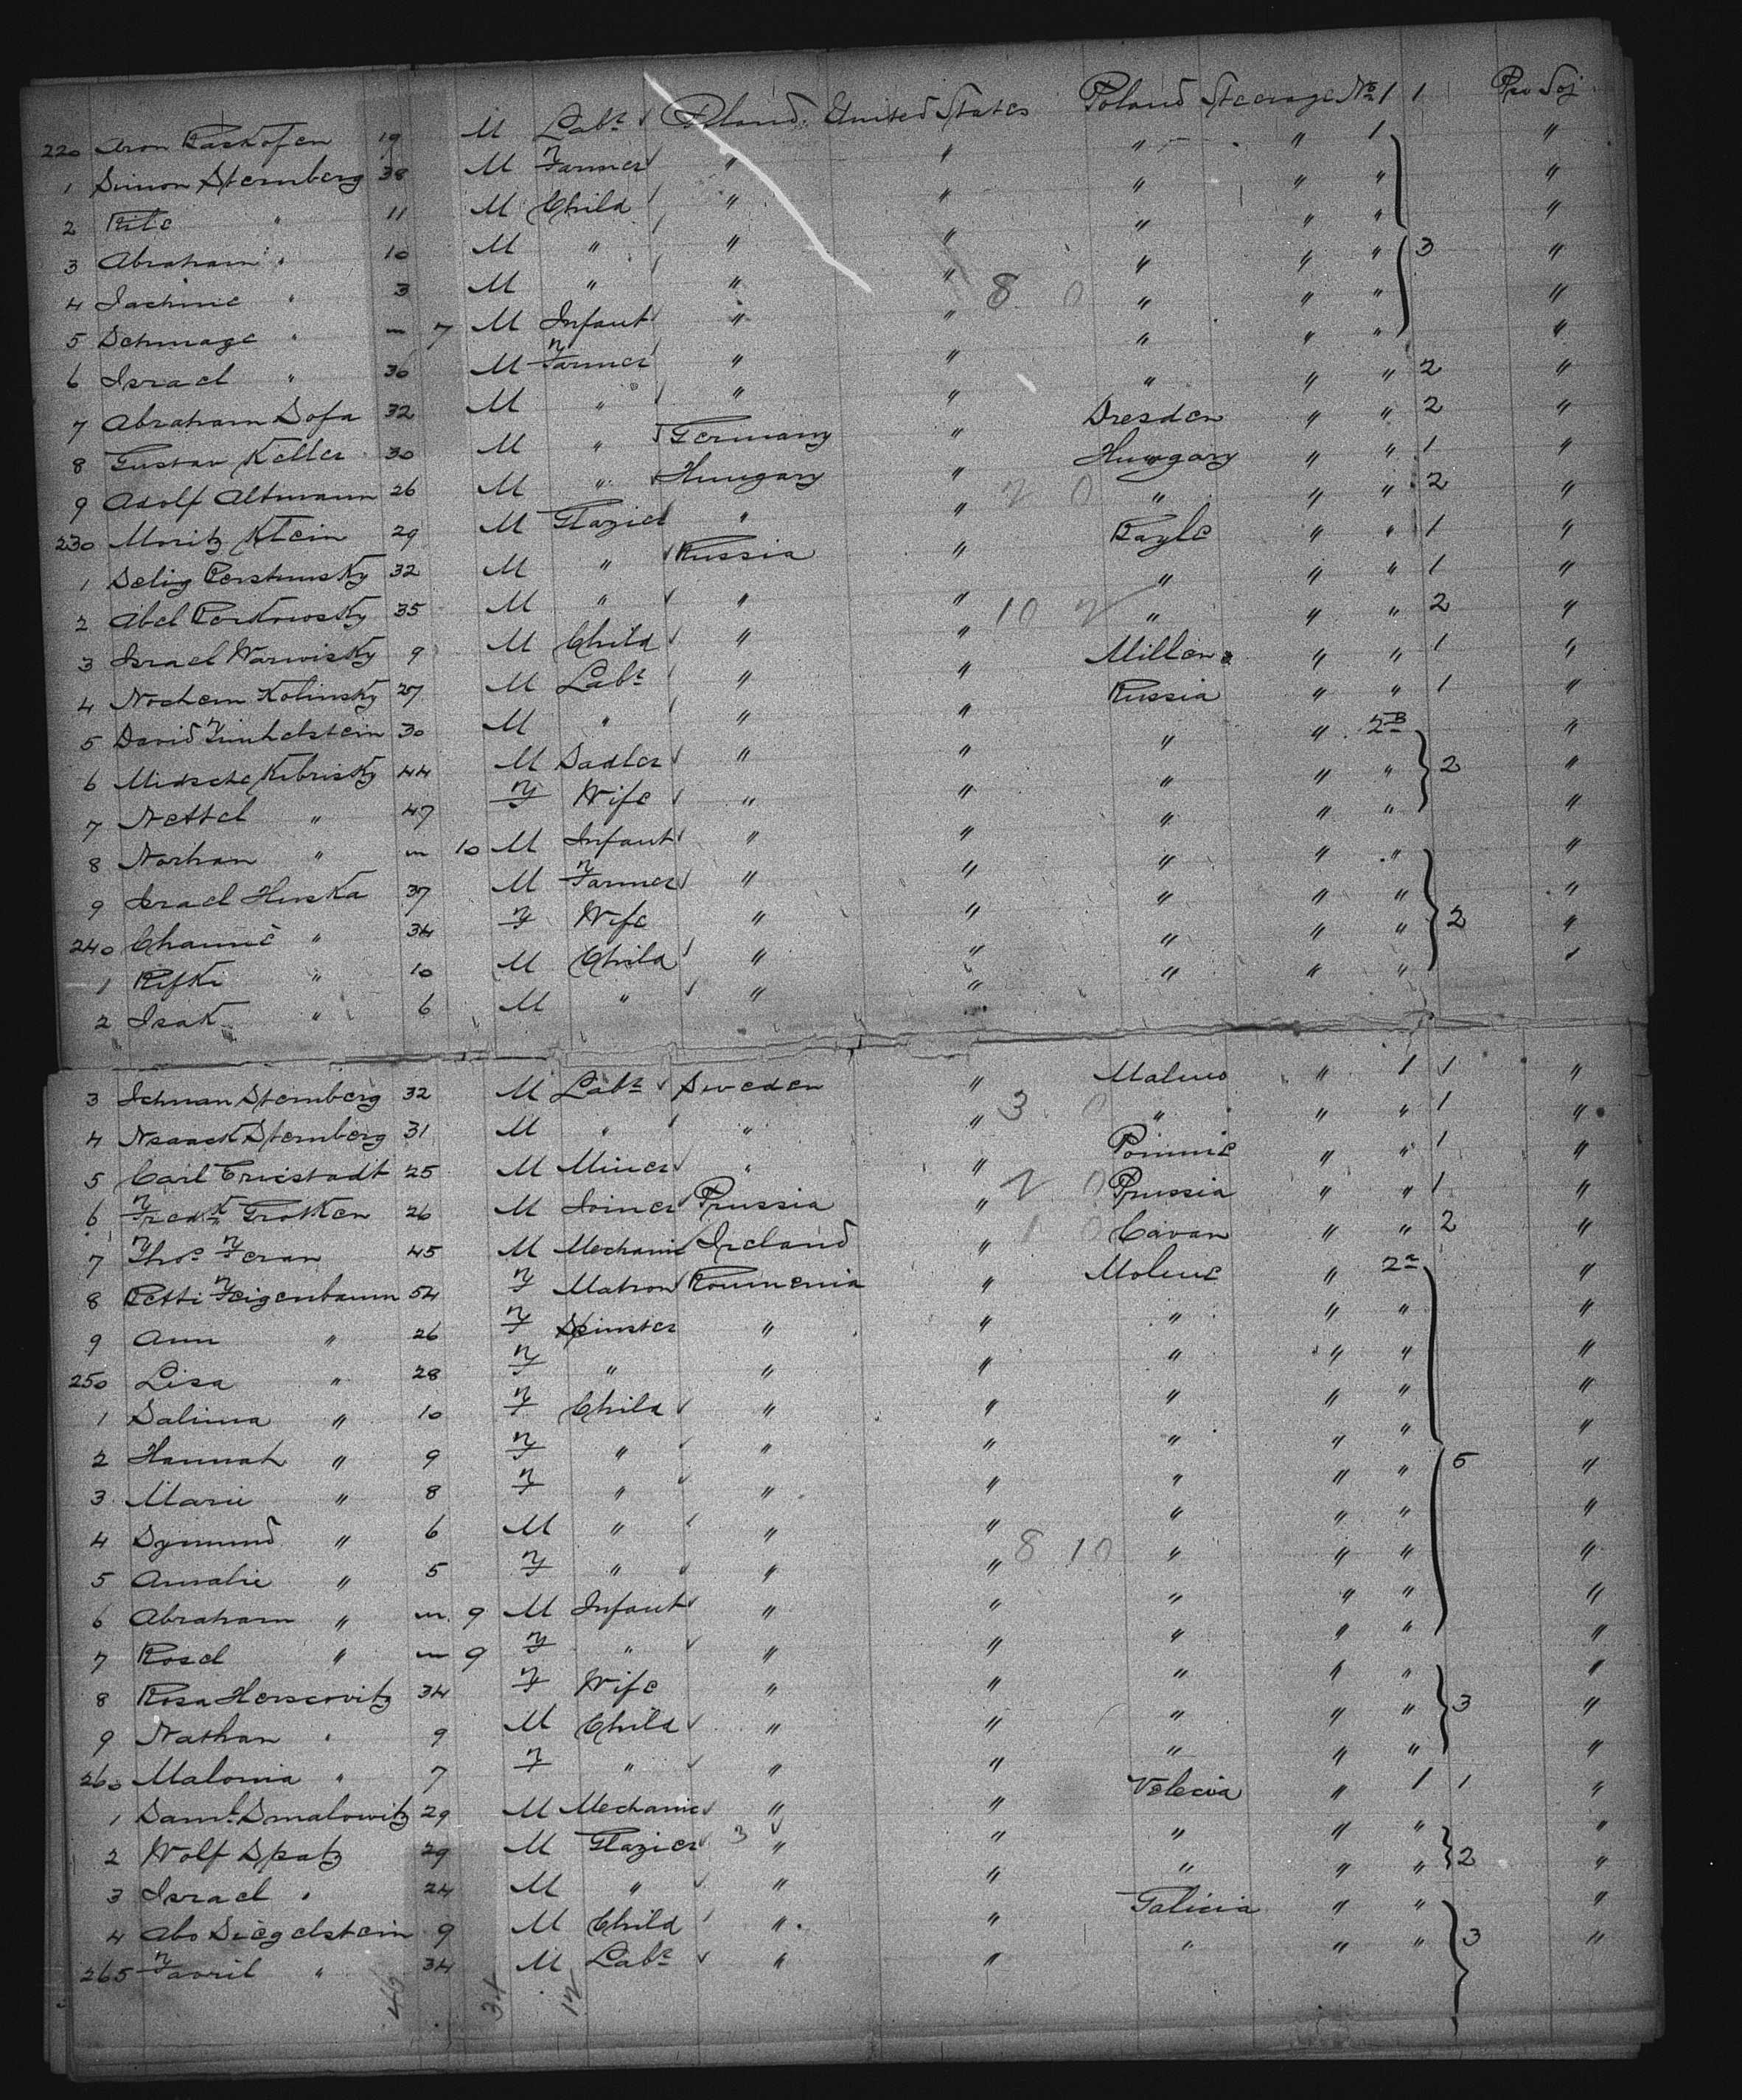 220 Aron Raskofen 19 M Labr Poland United States Poland Steerage No 1 1 Pro Soj
1 Simon Sternberg 38 M Farmer " " " " 1 "
2 Rite " 11 M Child " " " " " "
3 Abraham " 10 M " " " " " " 3 "
4 Jachine " 3 M " " " 8 0 " " " "
5 Schmage " m 7 M Infant " " " " " "
6 Israel " 36 M Farmer " " " " " 2 "
7 Abraham Sofa 32 M " " " " " " 2 "
8 Gustav Keller 30 M " Germany " Dresden " " 1 "
9 Adolf Altmann 26 M " Hungary " Hungary " " 2 "
230 Moritz Klein 29 M Glazier " " 2 0 " " " 1 "
1 Selig Perstunsky 32 M " Russia " Rayle " " 1 "
2 Abel Porkowsky 35 M " " " 10 2 " " " 2 "
3 Israel Warwisky 9 M Child " " " " " 1 "
4 Nochem Kolinsky 27 M Labr " " Millen " " 1 "
5 David Finhelstein 30 M " " " Russia " " "
6 Midsche Kibrisky 44 M Sadler " " " " 2B 2 "
7 Nettel " 47 F Wife " " " " " "
8 Northan " m 10 M Infant " " " " " "
9 Israel Huska 37 M Farmer " " " " " 2 "
240 Channe " 34 F Wife " " " " " "
1 Rifke " 10 M Child " " " " " "
2 Isak " 6 M " " " " " " "
3 Ichman Sternberg 32 M Labr Sweden " Malmo " 1 1 "
4 Nsaack Sternberg 31 M " " " 3 0 " " " 1 "
5 Carl Fricstadt 25 M Miner " " Pommie " " 1 "
6 Fredk Grokken 26 M Joiner Prussia " 2 0 Prussia " " 1 "
7 Thos Feran 45 M Mechanic Ireland " 1 0 Cavan " " 2 "
8 Retti Feigenbaum 54 F Matron Roumenia " Molme " 2a "
9 Ann " 26 F Spinster " " " " " "
250 Lisa " 28 F " " " " " " "
1 Salima " 10 F Child " " " " " "
2 Hannah " 9 F " " " " " " "
3 Marie " 8 F " " " " " " 5 "
4 Symund " 6 M " " " " " " "
5 Amalie " 5 F " " " 8 10 " " " "
6 Abraham " m 9 M Infant " " " " " "
7 Rosel " m 9 F " " " " " " "
8 Rosa Herscovitz 34 F Wife " " " " " 3 "
9 Nathan " 9 M Child " " " " " "
260 Malonia " 7 F " " " " " " "
1 Saml Smalowitz 29 M Mechanic " " Velecia " 1 1 "
2 Wolf Spatz 29 M Glazier 3 " " " " " 2 "
3 Israel " 24 M " " " " " " "
4 Abo Siegelstein 9 M Child " " Galicia " " 3 "
265 Favril " 34 M Labr " " " " " "
49 34 12